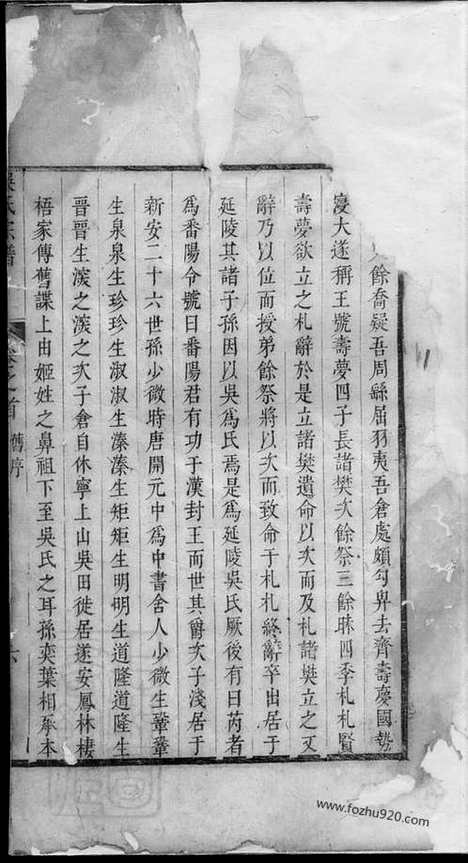 餘喬疑吾周繇屈羽夷吾倉處頗勾𢌿去齊壽夢國勢
寖大遂稱王號壽夢四子長諸樊次餘祭三餘眛四季札札賢
壽夢欲立之札辭於是立諸樊遺命以次而及札諸樊立之又
辭乃以位而授弟餘祭將以次而致命于札札終辭卒出居于
延陵其諸子孫因以吳爲氏焉是爲延陵吳氏厥後有曰芮者
爲番陽令號曰番陽君有功于漢封王而世其爵次子淺居于
新安二十六世孫少微時唐開元中爲中書舍人少微生鞏鞏
生泉泉生珍珍生淑淑生溱溱生矩矩生明明生道隆道隆生
晉晉生渶之渶之次子倉自休寧上山吳田徙居遂安鳳林棲
梧家傳舊諜上由姬姓之鼻祖下至吳氏之耳孫奕葉相承本
吳氏宗譜 卷之首 舊序 六
www.fozhu920.com